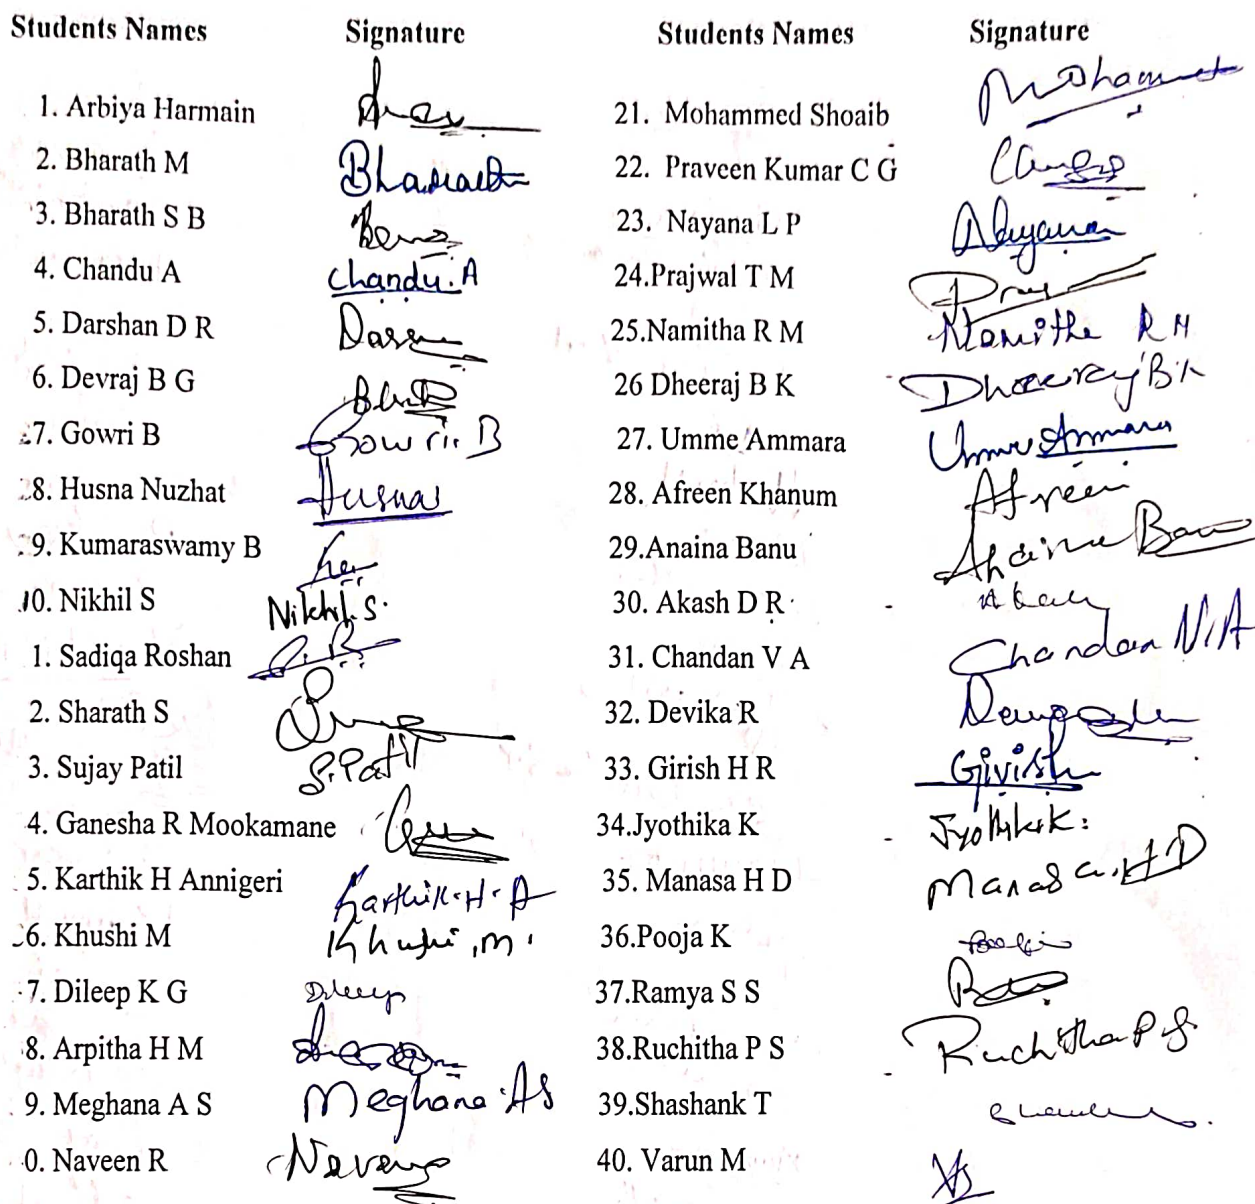 Students Names Signature Students Names Signature
1. Arbiya Harmain 21. Mohammed Shoaib Mohammed
2. Bharath M Bharath 22. Praveen Kumar C G
3. Bharath S B 23. Nayana L P Nayana
4. Chandu A Chandu.A 24.Prajwal T M
5. Darshan D R 25.Namitha R M Namitha R M
6. Devraj B G 26 Dheeraj B K Dheeraj B K
7. Gowri B Gowri. B 27. Umme Ammara Umme Ammara
8. Husna Nuzhat Husna 28. Afreen Khanum Afreen
9. Kumaraswamy B 29.Anaina Banu Anaina Banu
10. Nikhil S Nikhil.S. 30. Akash D R Akash
1. Sadiqa Roshan 31. Chandan V A Chandan V.A
2. Sharath S 32. Devika R
3. Sujay Patil S.Patil 33. Girish H R Girish
4. Ganesha R Mookamane 34.Jyothika K Jyothika.K.
5. Karthik H Annigeri Karthik.H.A 35. Manasa H D Manasa.H D
6. Khushi M Khushi.m. 36.Pooja K
7. Dileep K G Dileep 37.Ramya S S
8. Arpitha H M 38.Ruchitha P S Ruchitha P S
9. Meghana A S Meghana.AS 39.Shashank T
0. Naveen R Naveen 40. Varun M